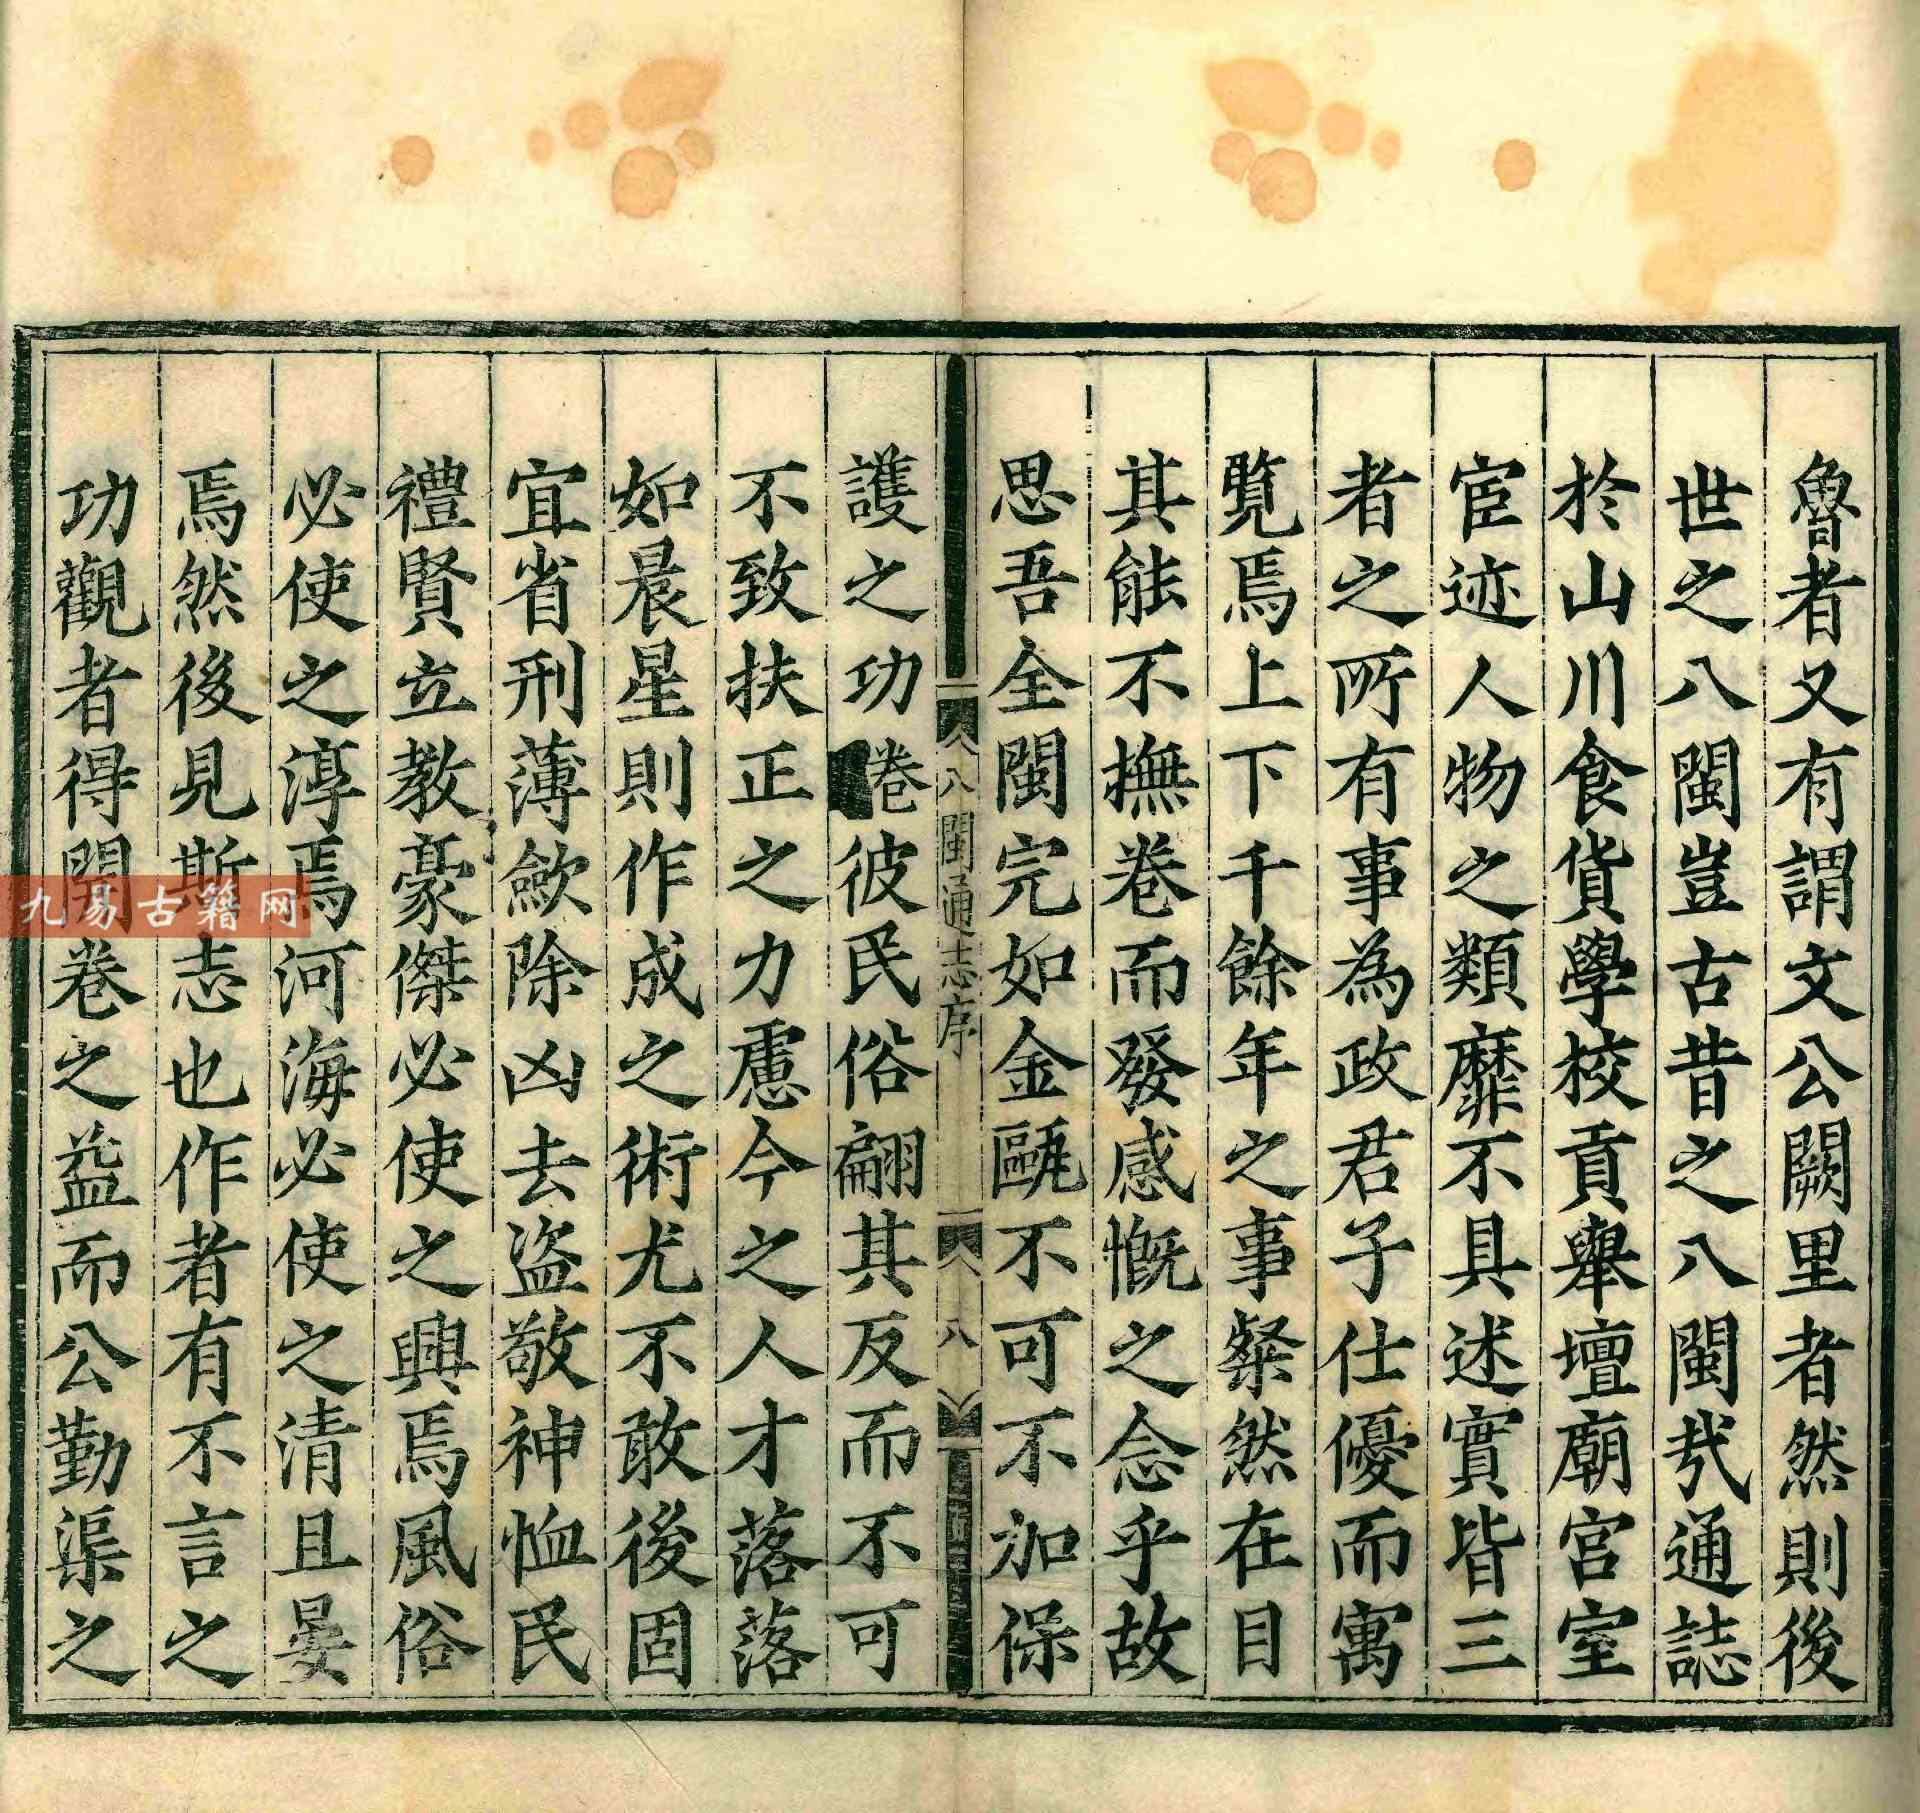 魯者又有謂文公闕里者然則後
世之八閩豈古昔之八閩㦲通誌
於山川食貨學校貢舉壇廟宮室
宦迹人物之類靡不具述實皆三
者之所有事為政君子仕優而寓
覽焉上下千餘年之事粲然在目
其能不撫卷而發感慨之念乎故
思吾全閩完如金甌不可不加保
八閩通志序
八
護之功睠彼民俗翩其反而不可
不致扶正之力慮今之人才落落
如晨星則作成之術尤不敢後固
宜省刑薄歛除凶去盜敬神恤民
禮賢立教豪傑必使之興焉風俗
必使之淳焉河海必使之清且晏
焉然後見斯志也作者有不言之
功觀者得開卷之益而公勤渠之
九易古籍网